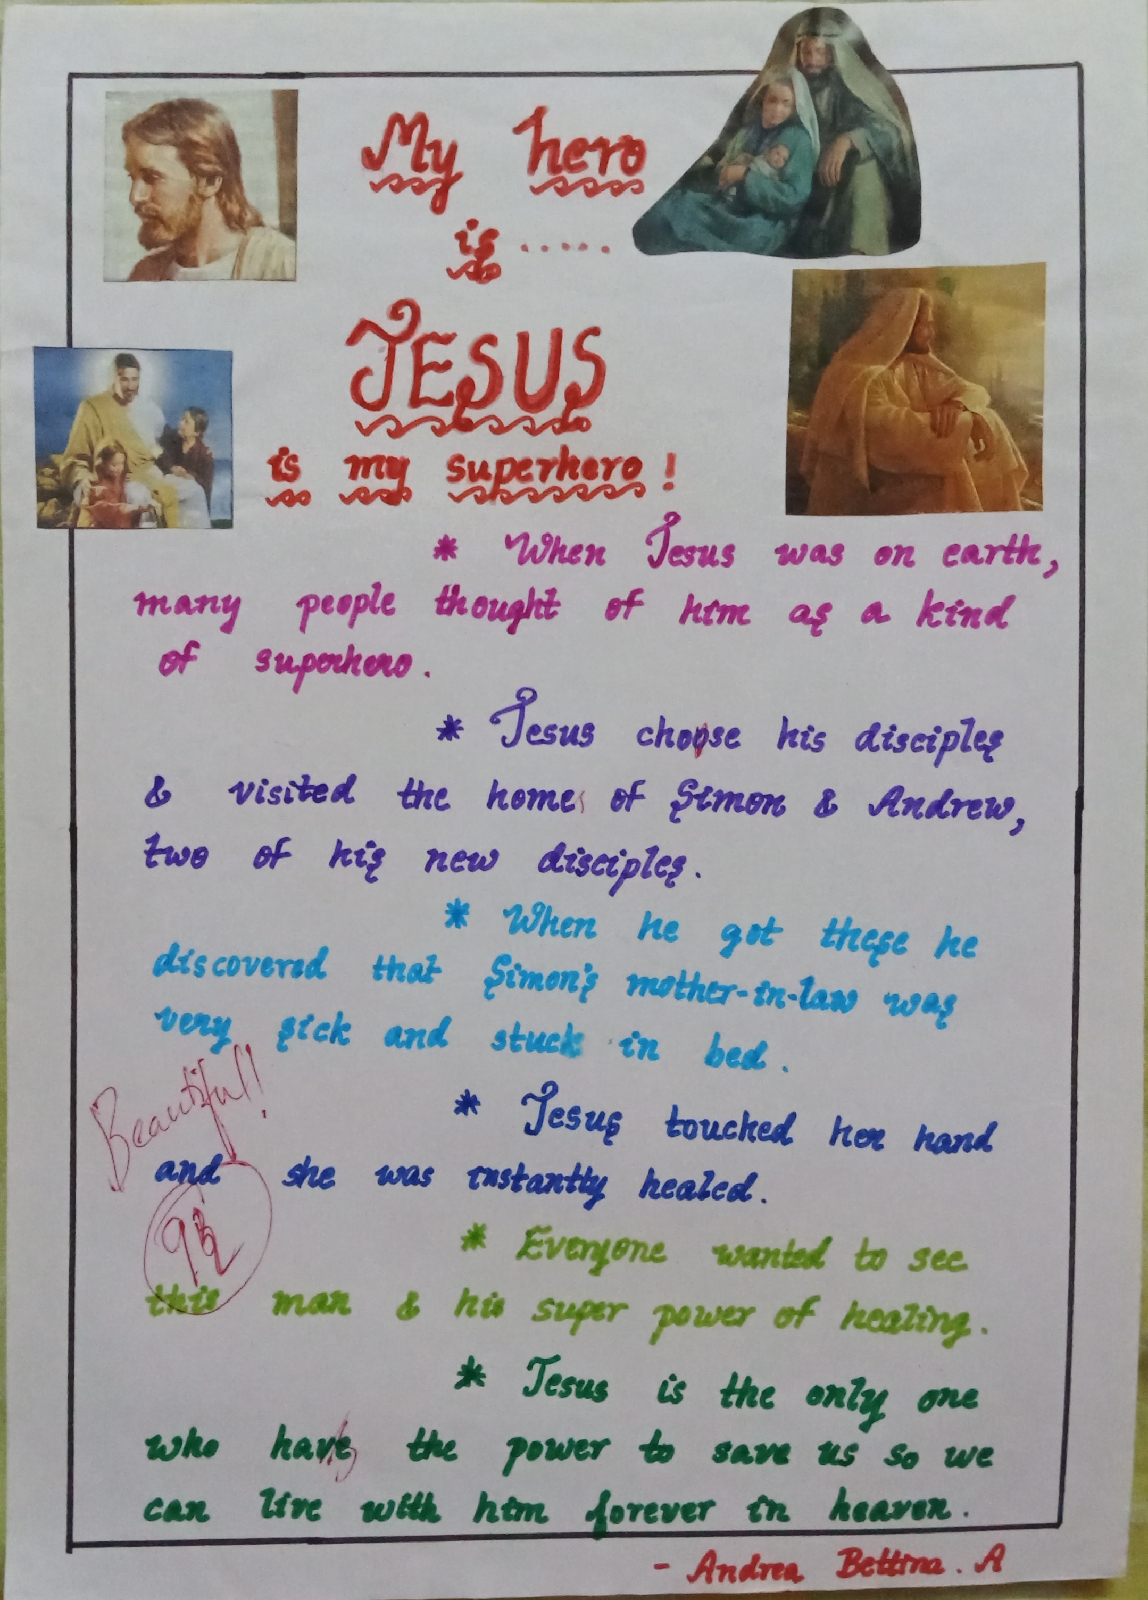 My hero
is .....
JESUS
is my superhero !
* When Jesus was on earth,
many people thought of him as a kind
of superhero.
* Jesus choose his disciples
& visited the home of Simon & Andrew,
two of his new disciples.
* When he got these he
discovered that Simon's mother-in-law was
very sick and stuck in bed.
Beautiful!
* Jesus touched her hand
and she was instantly healed.
* Everyone wanted to see
this man & his super power of healing.
* Jesus is the only one
who has the power to save us so we
can live with him forever in heaven.
- Andrea Bettina. A